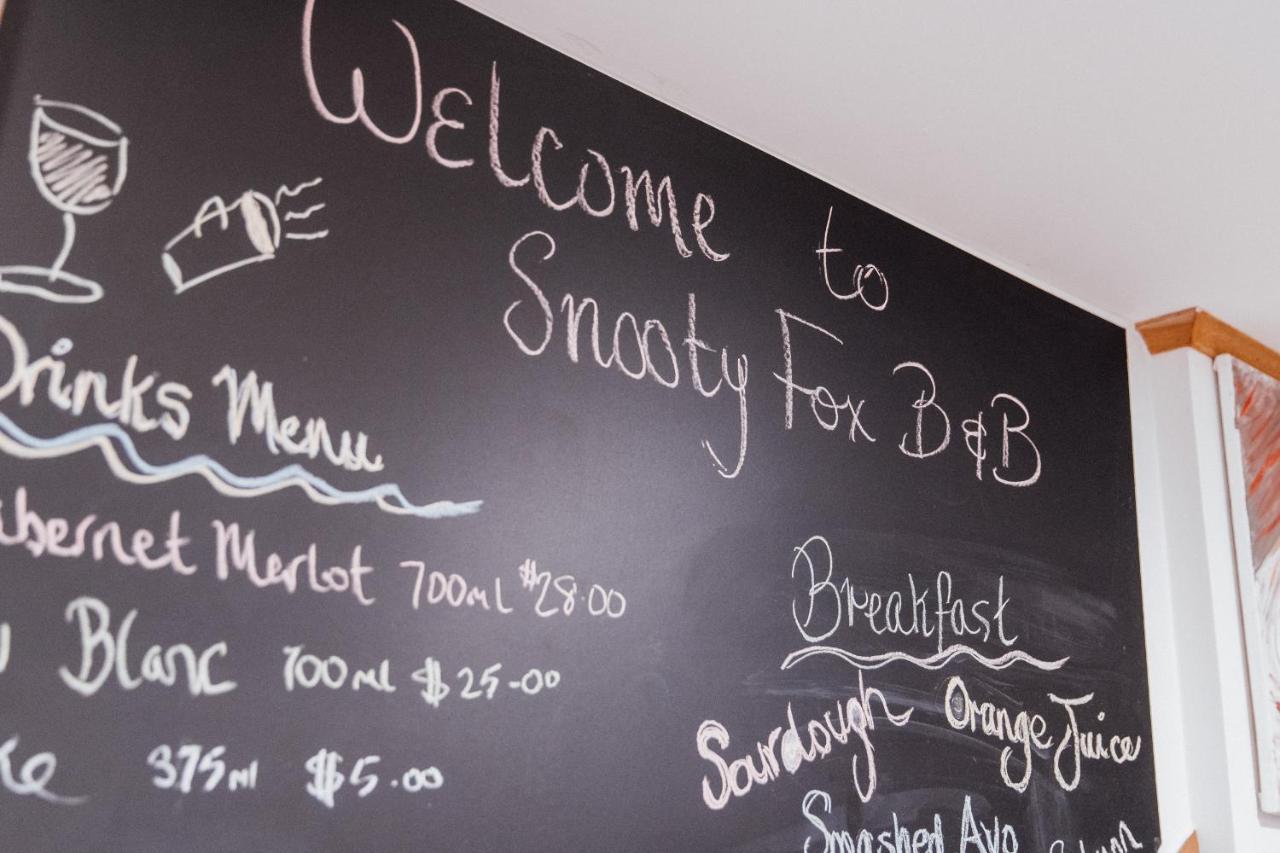 Welcome to
Snooty Fox B&B
Drinks Menu
abernet Merlot 700ml $28.00
Blanc 700ml $25.00
375ml $5.00
Breakfast
Sourdough Orange Juice
Smashed Avo